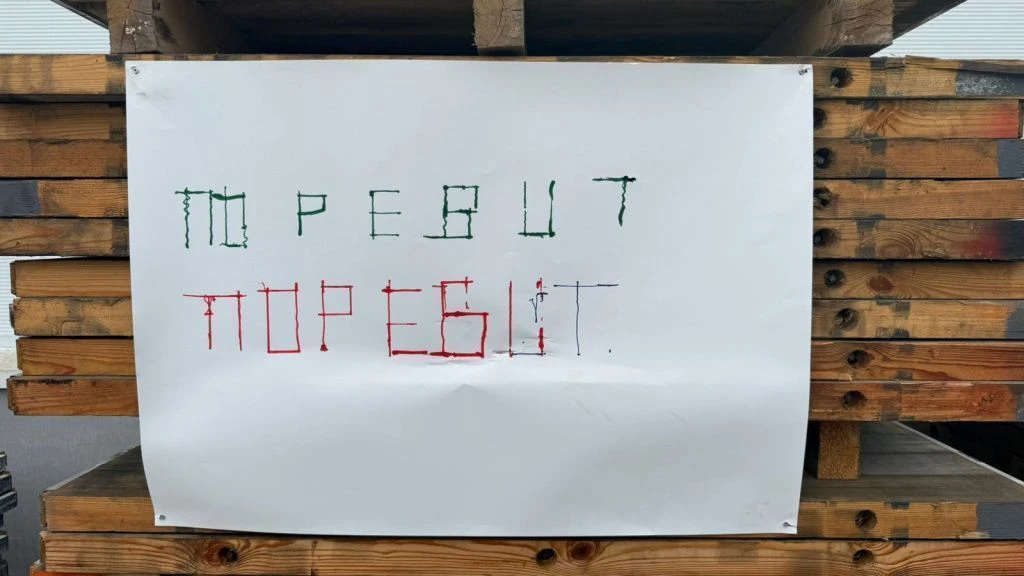 ПОРЕБИТ
ПОРЕБИТ.